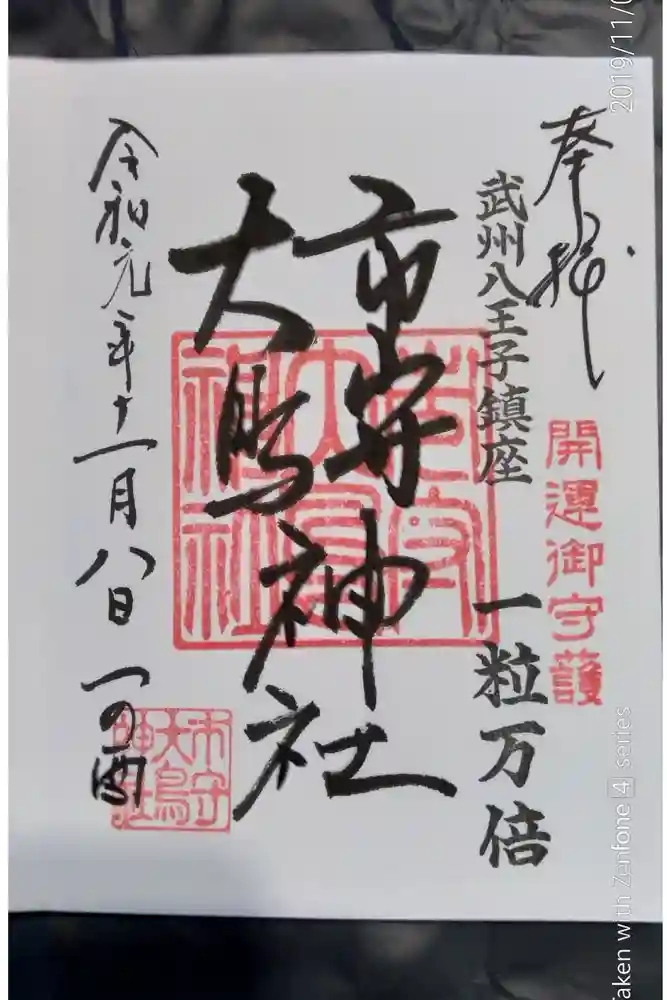 奉拝
開運御守護
武州八王子鎮座
一粒万倍
市守
大鳥
神社
令和元年十一月八日 一の酉
市守
大鳥
神社
市守
大鳥
神社
2019/11/0
Taken with Zenfone 4 series